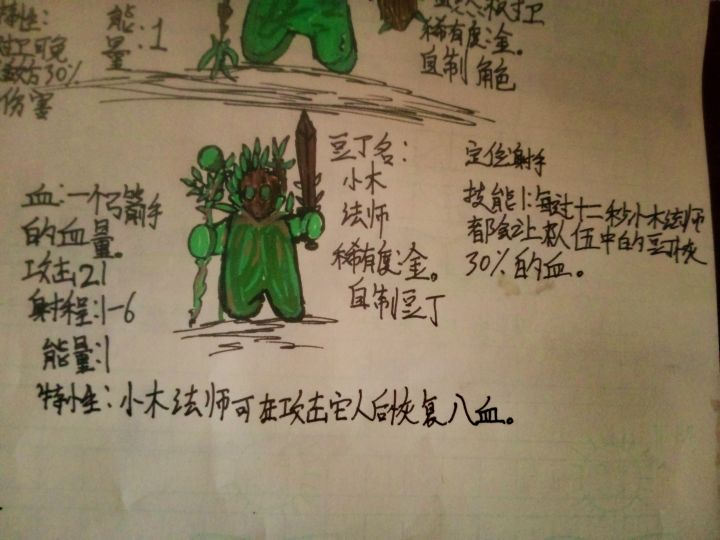 特性:
能
量:1
30%
伤害
护卫
稀有度:金。
自制角色
血:一个弓箭手
的血量。
攻击:21
射程:1-6
能量:1
豆丁名:
小木
法师
稀有度:金。
自制豆丁
定位射手
技能1:每过十二秒小木法师
都会让队伍中的豆丁恢
30%的血。
特性:小木法师可在攻击它人后恢复八血。